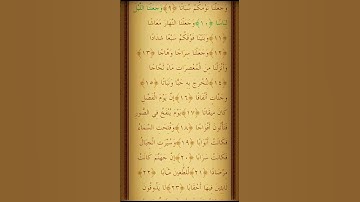 وَجَعَلْنَا نَوْمَكُمْ سُبَاتًا ﴿٩﴾ وَجَعَلْنَا اللَّيْلَ
لِبَاسًا ﴿١٠﴾ وَجَعَلْنَا النَّهَارَ مَعَاشًا
﴿١١﴾ وَبَنَيْنَا فَوْقَكُمْ سَبْعًا شِدَادًا
﴿١٢﴾ وَجَعَلْنَا سِرَاجًا وَهَّاجًا ﴿١٣﴾
وَأَنْزَلْنَا مِنَ الْمُعْصِرَاتِ مَاءً ثَجَّاجًا
﴿١٤﴾ لِنُخْرِجَ بِهِ حَبًّا وَنَبَاتًا ﴿١٥﴾
وَجَنَّاتٍ أَلْفَافًا ﴿١٦﴾ إِنَّ يَوْمَ الْفَصْلِ
كَانَ مِيقَاتًا ﴿١٧﴾ يَوْمَ يُنْفَخُ فِي الصُّورِ
فَتَأْتُونَ أَفْوَاجًا ﴿١٨﴾ وَفُتِحَتِ السَّمَاءُ
فَكَانَتْ أَبْوَابًا ﴿١٩﴾ وَسُيِّرَتِ الْجِبَالُ
فَكَانَتْ سَرَابًا ﴿٢٠﴾ إِنَّ جَهَنَّمَ كَانَتْ
مِرْصَادًا ﴿٢١﴾ لِلطَّاغِينَ مَآبًا ﴿٢٢﴾
لَابِثِينَ فِيهَا أَحْقَابًا ﴿٢٣﴾ لَا يَذُوقُونَ